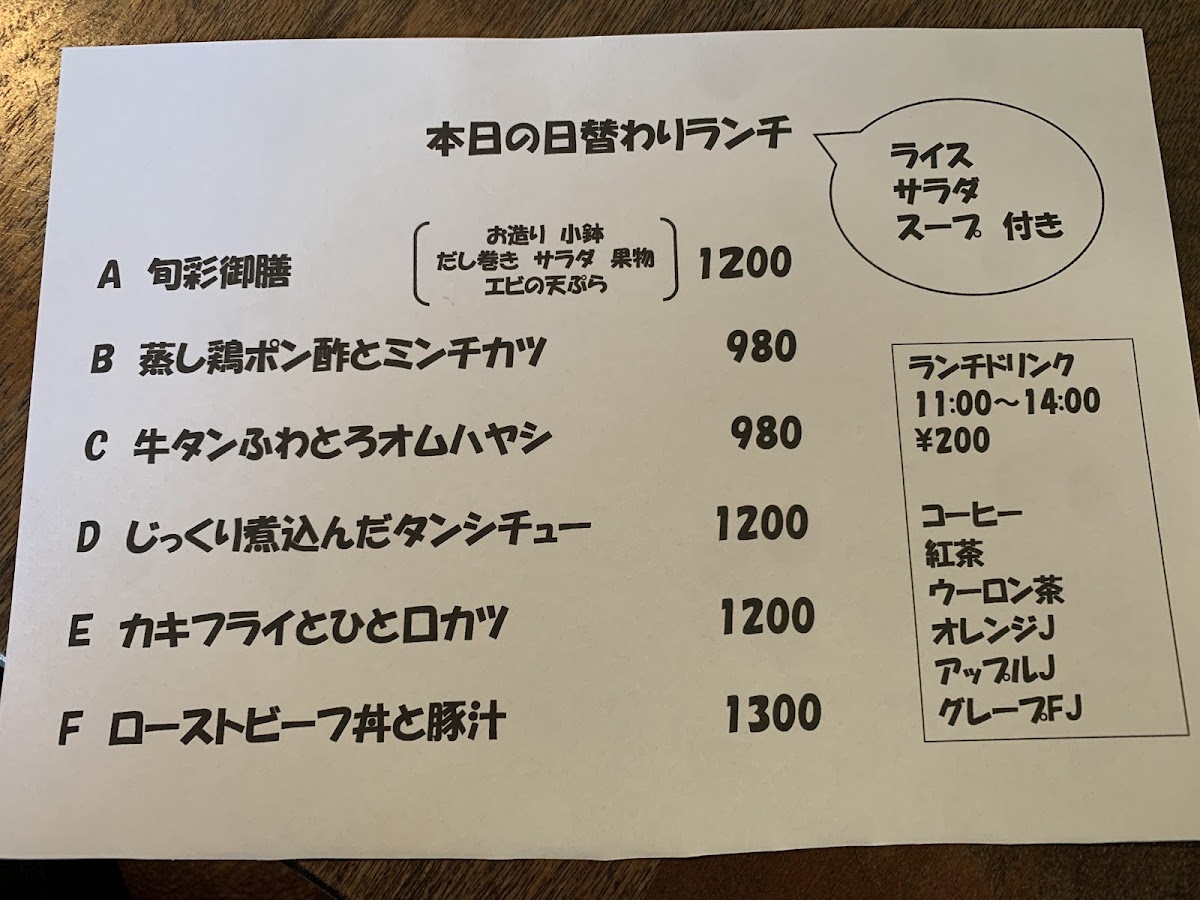 本日の日替わりランチ
ライス
サラダ
スープ 付き
A 旬彩御膳
お造り 小鉢
だし巻き サラダ 果物
エビの天ぷら
1200
B 蒸し鶏ポン酢とミンチカツ 980
C 牛タンふわとろオムハヤシ 980
D じっくり煮込んだタンシチュー 1200
E カキフライとひと口カツ 1200
F ローストビーフ丼と豚汁 1300
ランチドリンク
11:00～14:00
¥200
コーヒー
紅茶
ウーロン茶
オレンジJ
アップルJ
グレープFJ